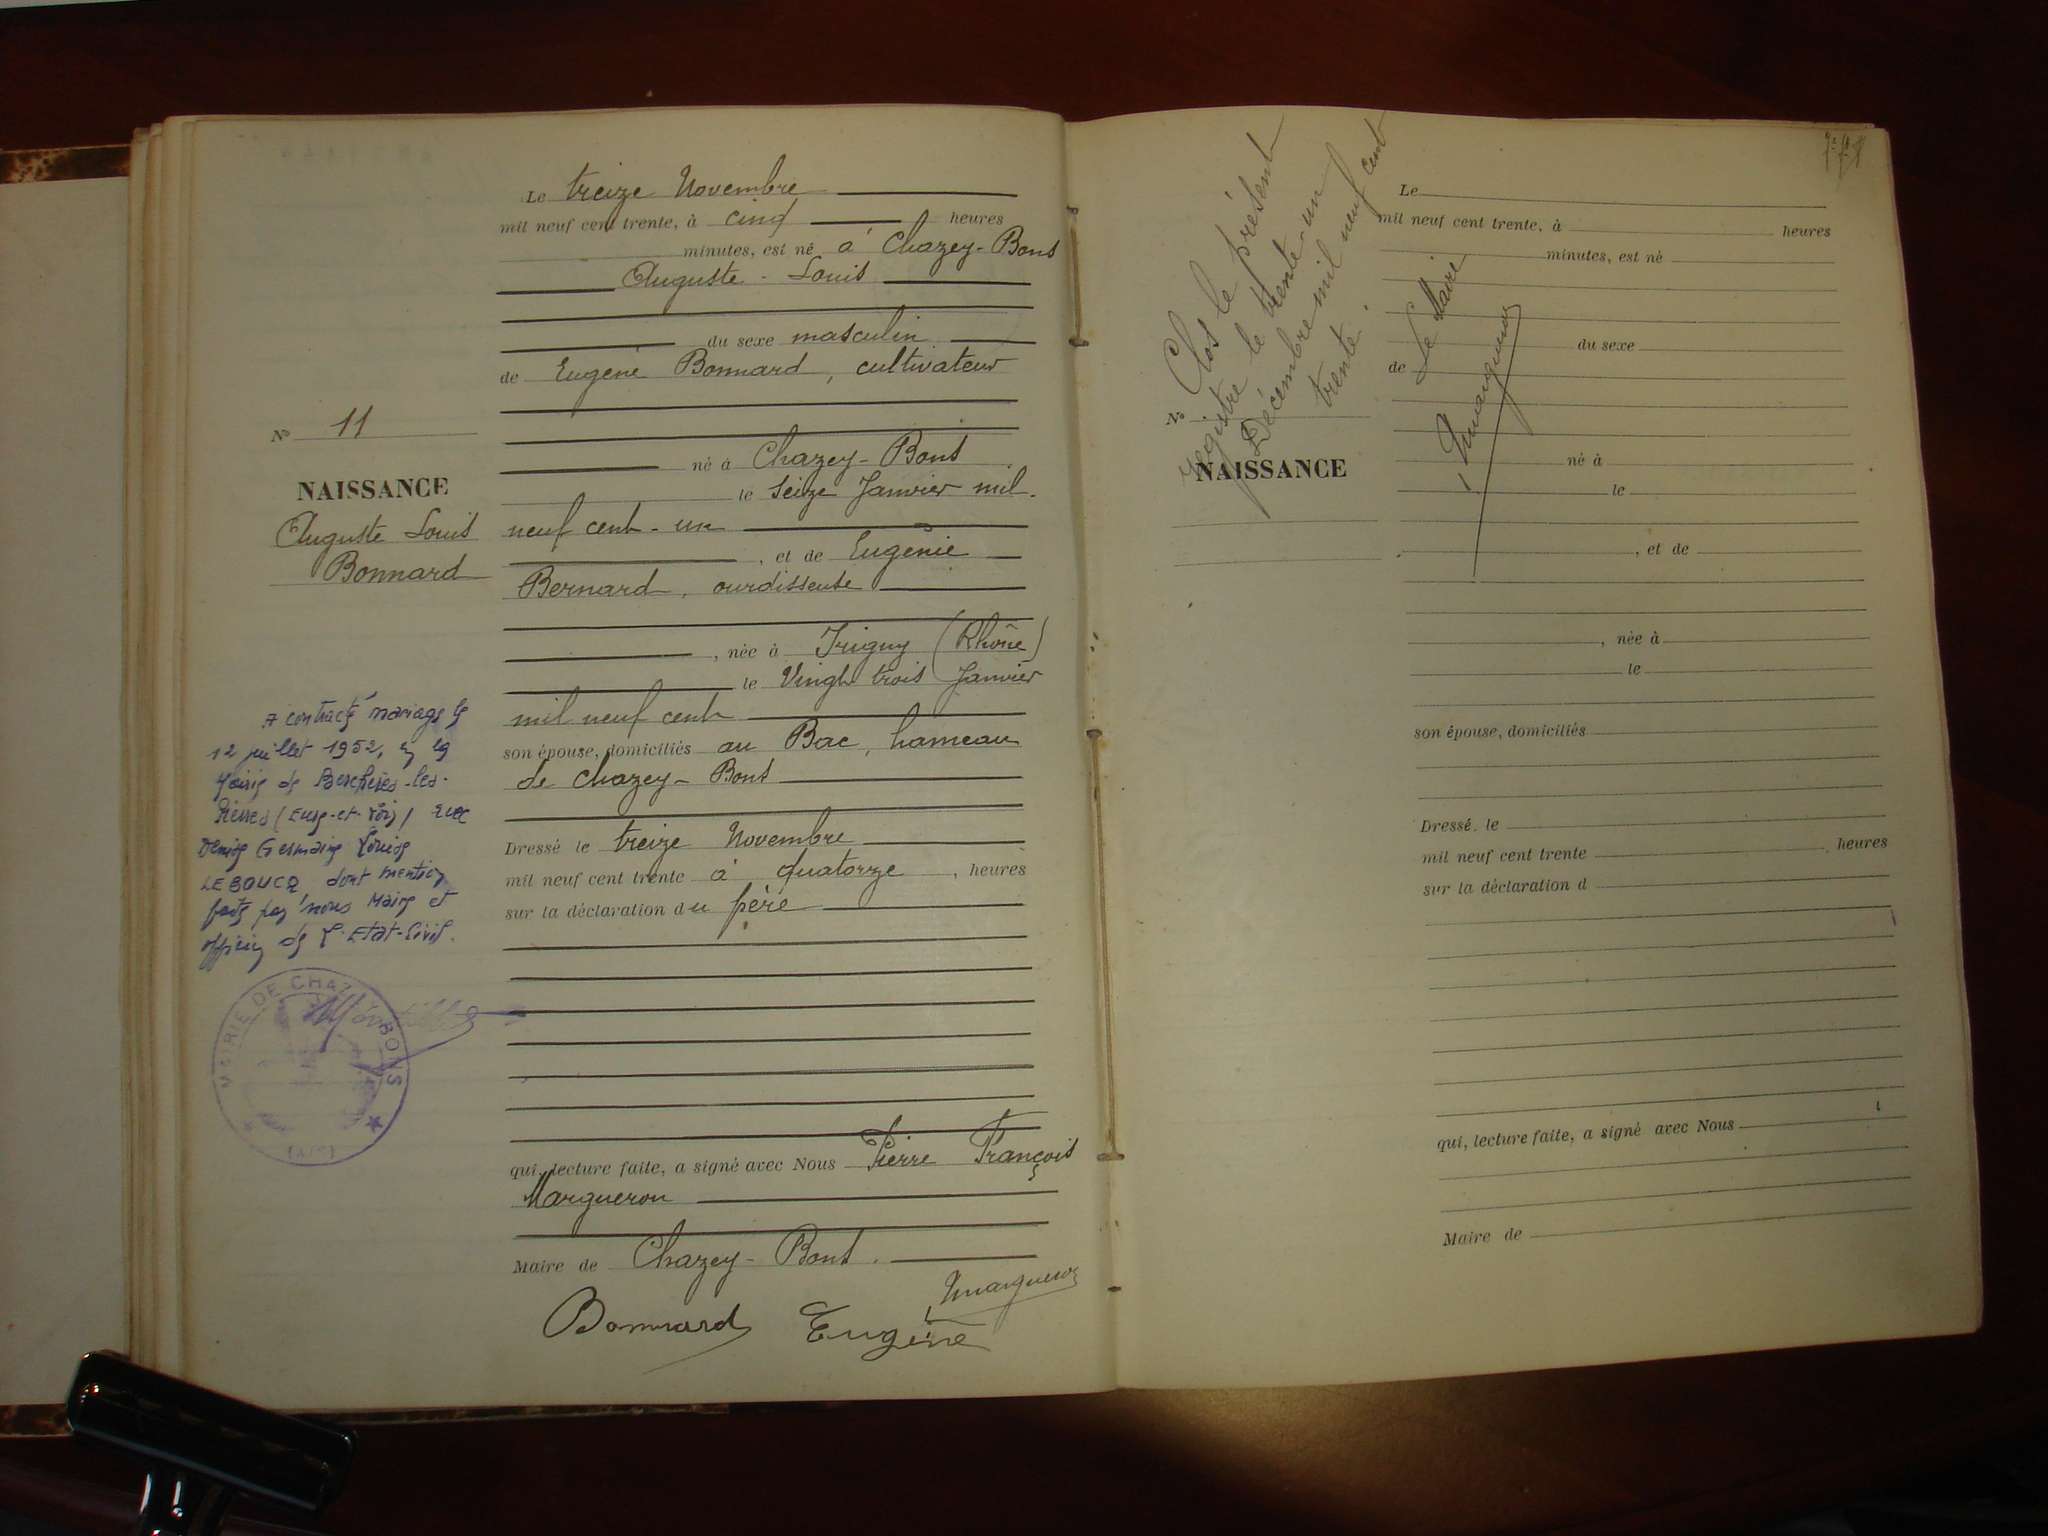 Le treize Novembre
mil neuf cent trente, à cinq heures
minutes, est né à Chazey-Bons
Auguste - Louis
du sexe masculin
de Eugène Bonnard, cultivateur
né à Chazey-Bons
le seize Janvier mil
neuf cent-un
, et de Eugènie
Bernard, ourdisseuse
, née à Irigny (Rhône)
le Vingt trois Janvier
mil neuf cent
son épouse, domiciliés au Bac, hameau
de Chazey-Bons
Dressé le treize Novembre
mil neuf cent trente à quatorze, heures
sur la déclaration du père
qui, lecture faite, a signé avec Nous Pierre François
Margueron
Maire de Chazey-Bons.
Margueron
Bonnard Eugène
No 11
NAISSANCE
Auguste Louis
Bonnard
A contracté mariage le
12 juillet 1952, en la
Mairie de Berchères-les-
Pierres (Eure-et-Loir) avec
Denise Germaine Louise
LEBOUCQ dont mention
faite par nous Maire et
officier de l'Etat-Civil.
MAIRIE DE CHAZEY BONS
(AIN)
Clos le présent
registre le trente-un
Décembre mil neuf cent
trente.
Le Maire
Margueron
No
NAISSANCE
Le
mil neuf cent trente, à heures
minutes, est né
du sexe
de
né à
le
, et de
, née à
le
son épouse, domiciliés
Dressé. le
mil neuf cent trente heures
sur la déclaration d
qui, lecture faite, a signé avec Nous
Maire de